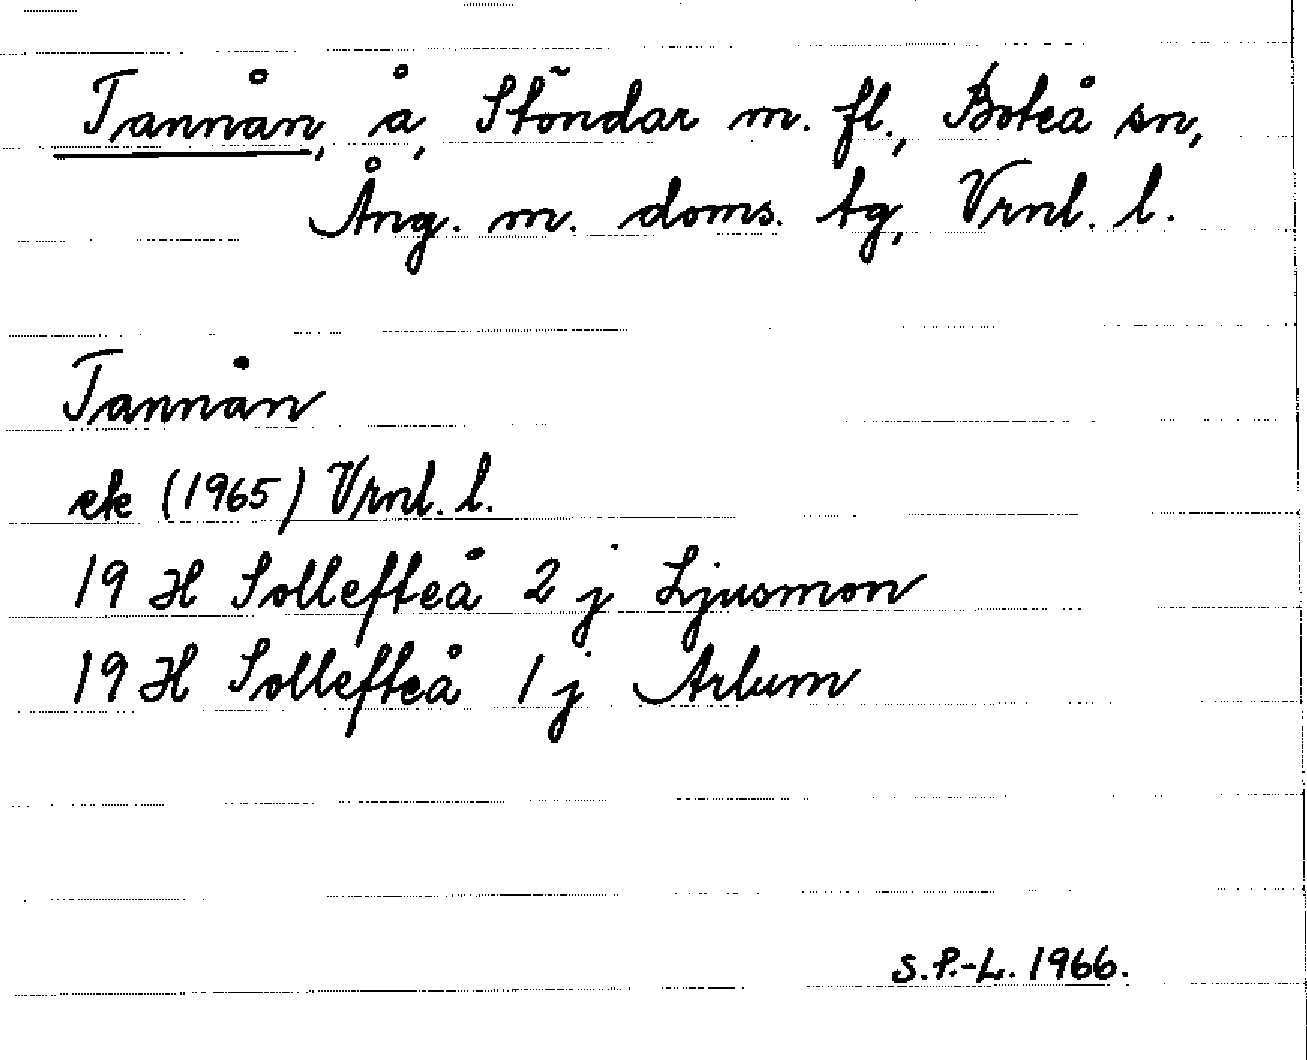 Tannån, å, Stöndar m. fl., Boteå sn,
Ång. m. doms. tg, Vrnl. l.
Tannån
ek (1965) Vrnl. l.
19 H Sollefteå 2 j Ljusmon
19 H Sollefteå 1 j Arlum
S.P.-L. 1966.